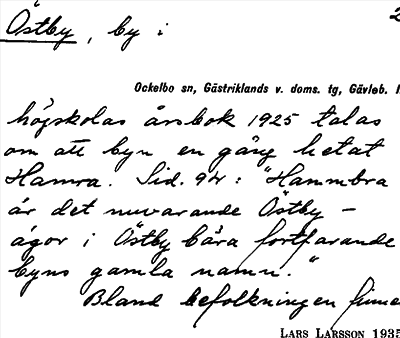 Östby, by i
Ockelbo sn, Gästriklands v. doms. tg, Gävleb. l
högskolas årsbok 1925 talas
om att byn en gång hetat
Hamra. Sid. 94: "Hammbra
är det nuvarande Östby –
ägor i Östby bära fortfarande
byns gamla namn."
Bland befolkningen finne
LARS LARSSON 1935